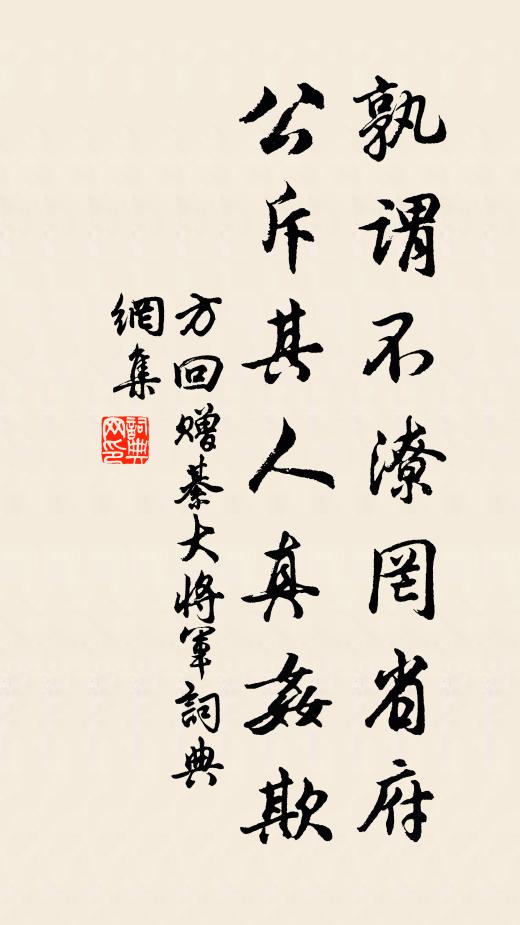 孰謂不潦罔省府
公斥其人真姦欺
方回贈綦大将軍詞典
網集
詞典
网印